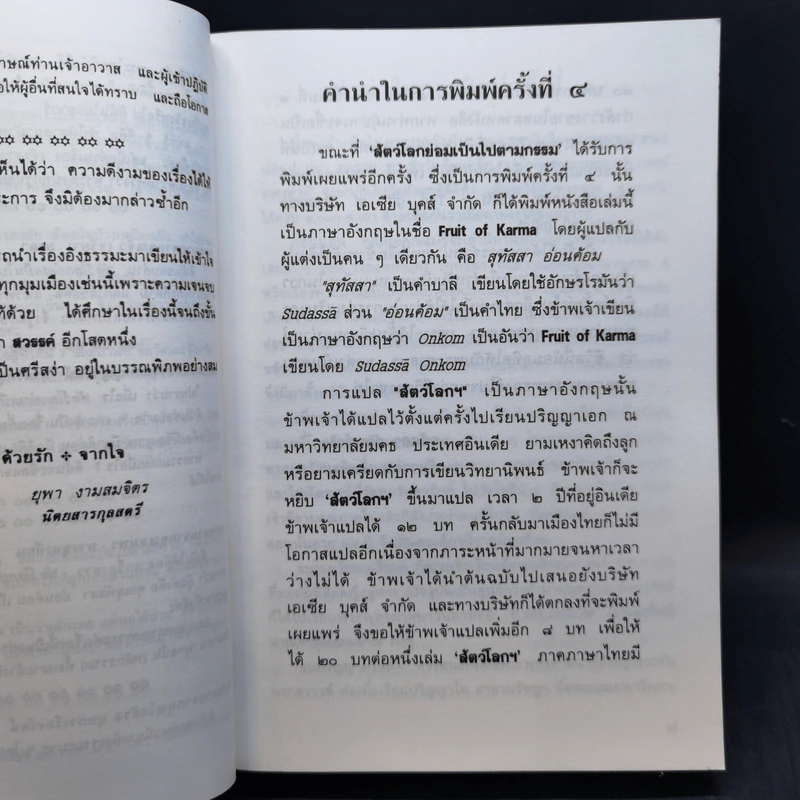 าษณ์ท่านเจ้าอาวาส และผู้เข้าปฏิบัติ
อให้ผู้อื่นที่สนใจได้ทราบ และถือโอกาส
ห็นได้ว่า ความดีงามของเรื่องได้ให้
ะการ จึงมิต้องมากล่าวซ้ำอีก
รถนำเรื่องอิงธรรมะมาเขียนให้เข้าใจ
ทุกมุมเมืองเช่นนี้เพราะความเจนจบ
ท้ด้วย ได้ศึกษาในเรื่องนี้จนถึงขั้น
ก สวรรค์ อีกโสตหนึ่ง
ป็นศรีสง่า อยู่ในบรรณพิภพอย่างสม
ด้วยรัก ÷ จากใจ
ยุพา งามสมจิตร
นิตยสารกุลสตรี
คำนำในการพิมพ์ครั้งที่ ๔
ขณะที่ 'สัตว์โลกย่อมเป็นไปตามกรรม' ได้รับการ
พิมพ์เผยแพร่อีกครั้ง ซึ่งเป็นการพิมพ์ครั้งที่ ๔ นั้น
ทางบริษัท เอเซีย บุคส์ จำกัด ก็ได้พิมพ์หนังสือเล่มนี้
เป็นภาษาอังกฤษในชื่อ Fruit of Karma โดยผู้แปลกับ
ผู้แต่งเป็นคน ๆ เดียวกัน คือ สุทัสสา อ่อนค้อม
"สุทัสสา" เป็นคำบาลี เขียนโดยใช้อักษรโรมันว่า
Sudassā ส่วน "อ่อนค้อม" เป็นคำไทย ซึ่งข้าพเจ้าเขียน
เป็นภาษาอังกฤษว่า Onkom เป็นอันว่า Fruit of Karma
เขียนโดย Sudassā Onkom
การแปล "สัตว์โลกฯ" เป็นภาษาอังกฤษนั้น
ข้าพเจ้าได้แปลไว้ตั้งแต่ครั้งไปเรียนปริญญาเอก ณ
มหาวิทยาลัยมคธ ประเทศอินเดีย ยามเหงาคิดถึงลูก
หรือยามเครียดกับการเขียนวิทยานิพนธ์ ข้าพเจ้าก็จะ
หยิบ 'สัตว์โลกฯ' ขึ้นมาแปล เวลา ๒ ปีที่อยู่อินเดีย
ข้าพเจ้าแปลได้ ๑๒ บท ครั้นกลับมาเมืองไทยก็ไม่มี
โอกาสแปลอีกเนื่องจากภาระหน้าที่มากมายจนหาเวลา
ว่างไม่ได้ ข้าพเจ้าได้นำต้นฉบับไปเสนอยังบริษัท
เอเซีย บุคส์ จำกัด และทางบริษัทก็ได้ตกลงที่จะพิมพ์
เผยแพร่ จึงขอให้ข้าพเจ้าแปลเพิ่มอีก ๘ บท เพื่อให้
ได้ ๒๐ บทต่อหนึ่งเล่ม 'สัตว์โลกฯ' ภาคภาษาไทยมี